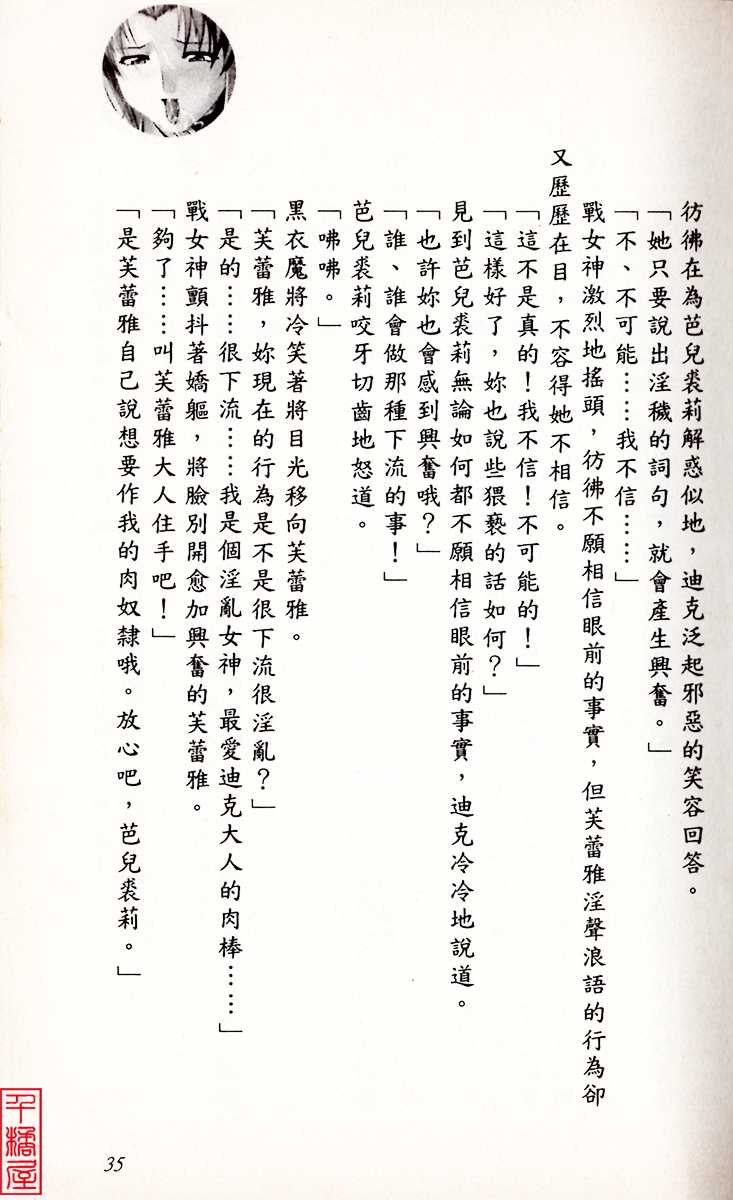 彷彿在為芭兒裘莉解惑似地，迪克泛起邪惡的笑容回答。
「她只要說出淫穢的詞句，就會產生興奮。」
「不、不可能……我不信……」
戰女神激烈地搖頭，彷彿不願相信眼前的事實，但芙蕾雅淫聲浪語的行為卻
又歷歷在目，不容得她不相信。
「這不是真的！我不信！不可能的！」
「這樣好了，妳也說些猥褻的話如何？」
見到芭兒裘莉無論如何都不願相信眼前的事實，迪克冷冷地說道。
「也許妳也會感到興奮哦？」
「誰、誰會做那種下流的事！」
芭兒裘莉咬牙切齒地怒道。
「咈咈。」
黑衣魔將冷笑著將目光移向芙蕾雅。
「芙蕾雅，妳現在的行為是不是很下流很淫亂？」
「是的……很下流……我是個淫亂女神，最愛迪克大人的肉棒……」
戰女神顫抖著嬌軀，將臉別開愈加興奮的芙蕾雅。
「夠了……叫芙蕾雅大人住手吧！」
「是芙蕾雅自己說想要作我的肉奴隸哦。放心吧，芭兒裘莉。」
35
千橘屋